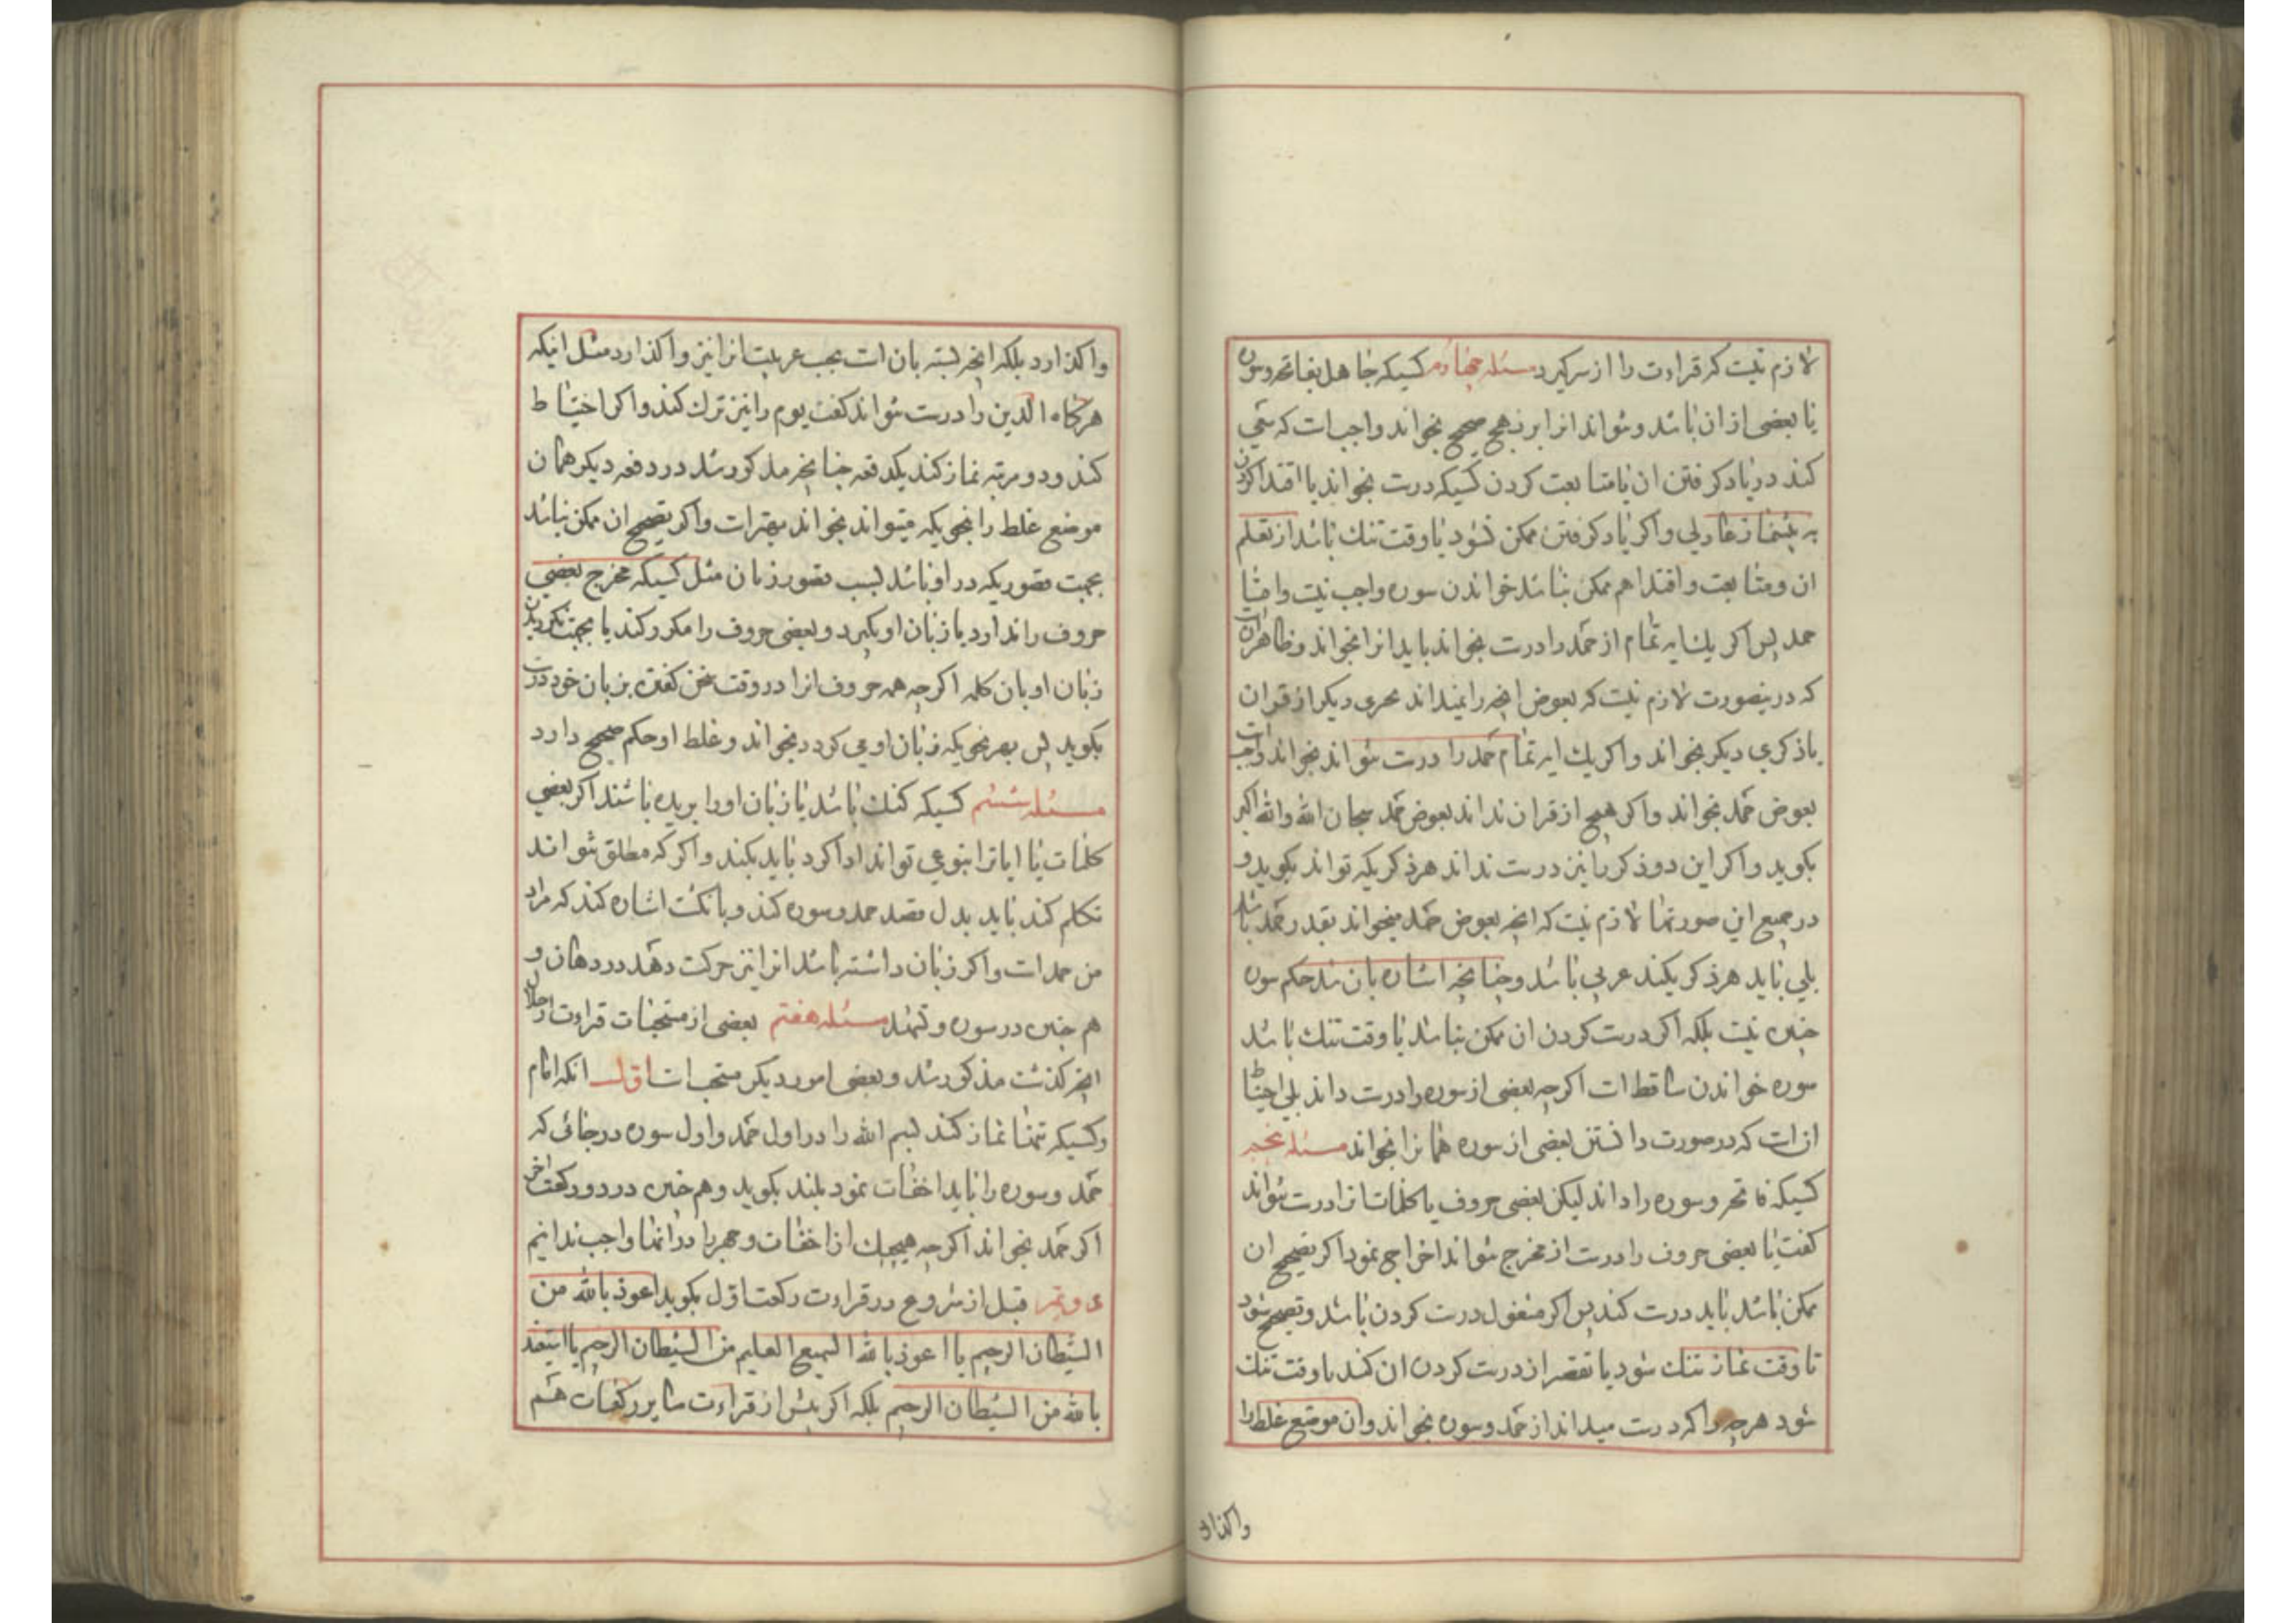 لازم نیست که قراءت را از سر کیرد مسئله چهارم کسیکه جاهل بفاتحه وسوره
یا بعضی از ان باشد و نتواند انرا بر نهج صحیح بخواند واجب است که سعی
کند در یاد کرفتن ان یا متابعت کردن کسیکه درست بخواند یا اقتدا کردن
به پیشنماز عادلی واکر یاد کرفتن ممکن نشود یا وقت تنك باشد از تعلم
ان ومتابعت واقتدا هم ممکن نباشد خواندن سوره واجب نیست واما
حمد پس اکر یك ایه تمام از حمد را درست بخواند باید انرا بخواند وظاهر انست
که درینصورت لازم نیست که بعوض انچه را نمیداند بحری دیکر از قران
یا ذکری دیکر بخواند واکر یك ایه تمام حمد را درست نتواند بخواند واجب است
بعوض حمد بخواند واکر هیچ از قران نداند بعوض حمد سبحان الله والله اکبر
بکوید واکر این دو ذکر را نیز درست نداند هر ذکریکه تواند بکوید و
در جمیع این صورتها لازم نیست که انچه بعوض حمد میخواند بقدر حمد باشد
بلی باید هر ذکر یکند عربی باشد وچنانچه اشاره بان شد حکم سوره
چنین نیست بلکه اکر درست کردن ان ممکن نباشد یا وقت تنك باشد
سوره خواندن ساقط است اکرچه بعضی از سوره را درست داند بلی احتیاط
ان است که در صورت دانستن بعضی از سوره همانرا بخواند مسئله پنجم
کسیکه فاتحه وسوره را داند لیکن بعضی حروف یا کلمات انرا درست نتواند
کفت یا بعضی حروف را درست از مخرج نتواند اخراج نمود اکر تصحیح ان
ممکن باشد باید درست کند پس اکر مشغول درست کردن باشد وتصحیح نشود
تا وقت نماز تنك شود یا تقصیر از درست کردن ان کند تا وقت تنك
شود هرچه را که درست میداند از حمد وسوره بخواند وان موضع غلط را
واکذارد
واکذارد بلکه انچه بسته بان است بحسب عربیت انرا نیز واکذارد مثل اینکه
هرکاه الدین را درست نتواند کفت یوم را نیز ترك کند واکر احتیاط
کند و دو مرتبه نماز کند یکدفعه چنانچه مذکور شد در دفعه دیکر همان
موضع غلط را بنحویکه میتواند بخواند بهتر است واکر تصحیح ان ممکن نباشد
بجهت قصوریکه در او باشد بسبب قصور زبان مثل کسیکه مخرج بعضی
حروف را ندارد یا زبان او بکیرد وبعضی حروف را مکرر کند یا بجهت نکردیدن
زبان او بان کلمه اکرچه همه حروف انرا در وقت سخن کفتن بزبان خود درست
بکوید پس بهر نحویکه زبان او می کردد بخواند و غلط او حکم صحیح دارد
مسئله ششم کسیکه کنك باشد یا زبان او را بریده باشند اکر بعضی
کلمات یا ایاترا بنوعی تواند ادا کرد باید بکند واکر که مطلق نتواند
تکلم کند باید بدل قصد حمد وسوره کند وبانکشت اشاره کند که مراد
من حمد است واکر زبان داشته باشد انرا نیز حرکت دهد در دهان و
هم چنین در سوره وتشهد مسئله هفتم بعضی از مستحبات قراءت در خلال
انچه کذشت مذکور شد وبعضی امور دیکر مستحب است اول انکه امام
وکسیکه تنها نماز کند بسم الله را در اول حمد واول سوره در جائی که
حمد وسوره را باید اخفات نمود بلند بکوید وهم چنین در دو رکعت اخر
اکر حمد بخواند اکرچه هیچیك از اخفات وجهر را در انها واجب ندانیم
دویم قبل از شروع در قراءت رکعت اول بکوید اعوذ بالله من
الشیطان الرجیم یا اعوذ بالله السمیع العلیم من الشیطان الرجیم یا استعیذ
بالله من الشیطان الرجیم بلکه اکر پیش از قراءت سایر رکعات هم